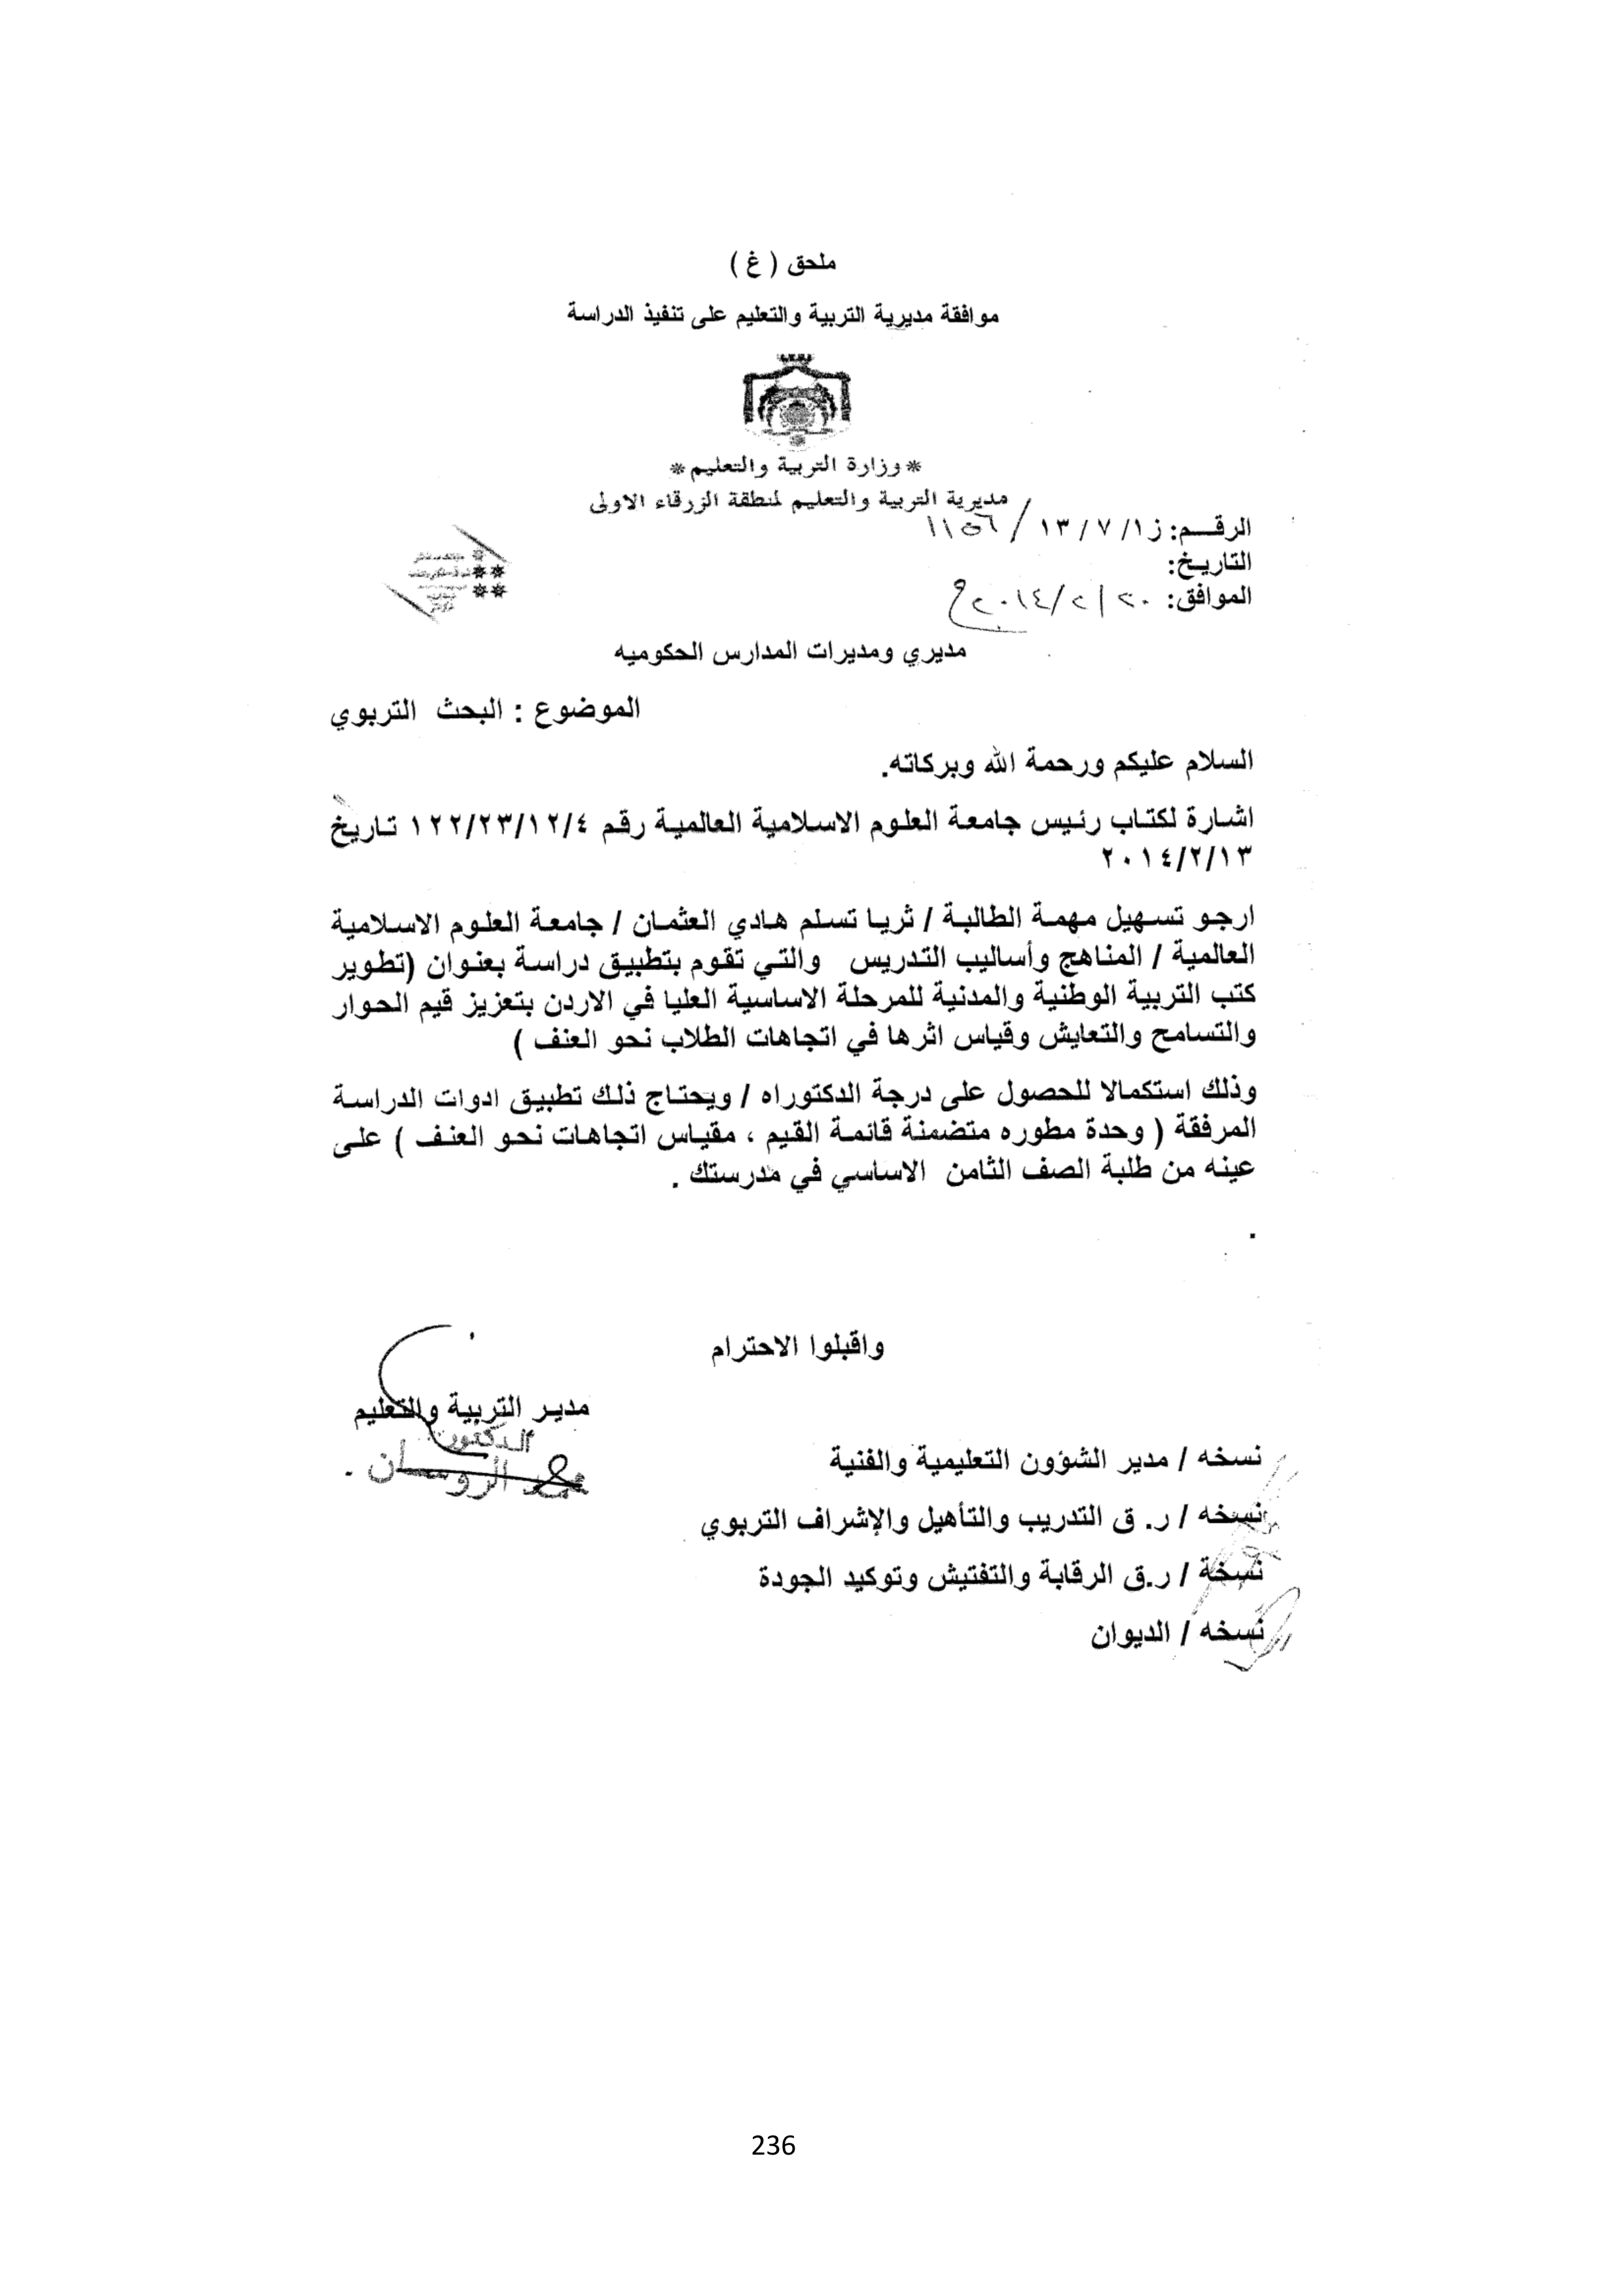 ملحق ( غ )
موافقة مديرية التربية والتعليم على تنفيذ الدراسة
* وزارة التربية والتعليم *
مديرية التربية والتعليم لمنطقة الزرقاء الاولى
الرقــم: ز١/ ٧/ ١٣ / ١١٥٦
التاريـخ:
الموافق: ٢٠/٢/٢٠١٤
مديري ومديرات المدارس الحكوميه
الموضوع : البحث التربوي
السلام عليكم ورحمة الله وبركاته.
اشارة لكتاب رئيس جامعة العلوم الاسلامية العالمية رقم ١٢٢/٢٣/١٢/٤ تاريخ
٢٠١٤/٢/١٣
ارجو تسهيل مهمة الطالبة / ثريا تسلم هادي العثمان / جامعة العلوم الاسلامية
العالمية / المناهج وأساليب التدريس والتي تقوم بتطبيق دراسة بعنوان (تطوير
كتب التربية الوطنية والمدنية للمرحلة الاساسية العليا في الاردن بتعزيز قيم الحوار
والتسامح والتعايش وقياس اثرها في اتجاهات الطلاب نحو العنف )
وذلك استكمالا للحصول على درجة الدكتوراه / ويحتاج ذلك تطبيق ادوات الدراسة
المرفقة ( وحدة مطوره متضمنة قائمة القيم ، مقياس اتجاهات نحو العنف ) على
عينه من طلبة الصف الثامن الاساسي في مدرستك .
.
واقبلوا الاحترام
مدير التربية والتعليم
الدكتور
الروسان .
نسخه / مدير الشؤون التعليمية والفنية
نسخه / ر. ق التدريب والتأهيل والإشراف التربوي
نسخة / ر.ق الرقابة والتفتيش وتوكيد الجودة
نسخه / الديوان
236